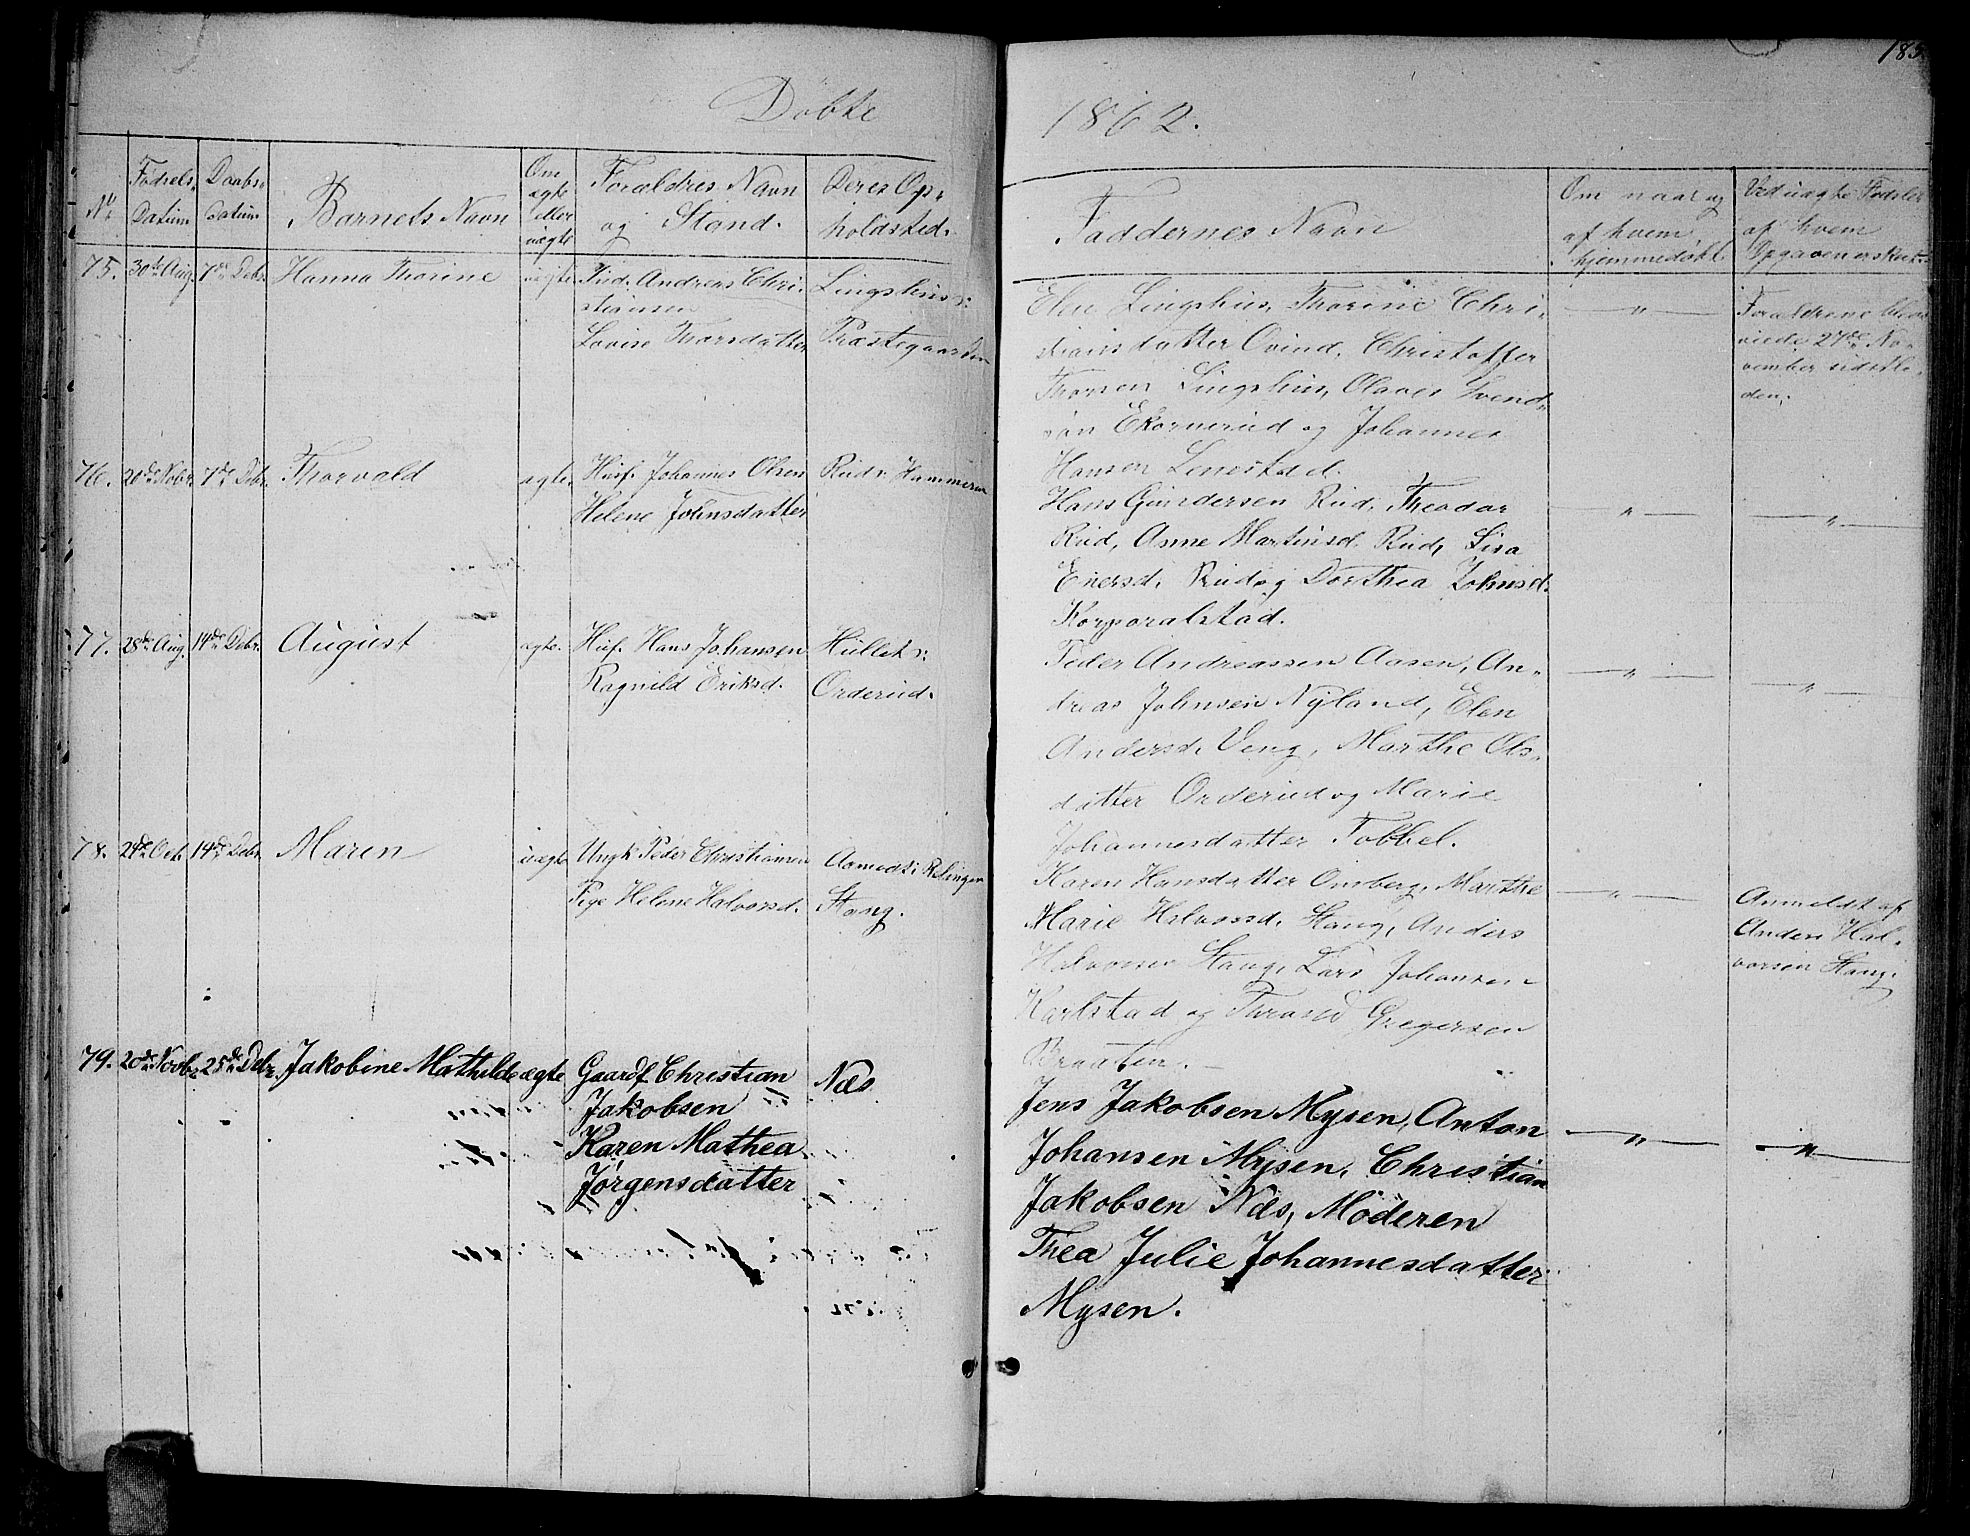 185
Döbte
1862.
No
Fødsels
Datum
Daabs
Datum
Barnets Navn
Om
ægte
eller
uægte
Forældres Navn
og Stand.
Deres Op-
holdsted.
Faddernes Navn
Om naar og
af hvem
hjemmedøbt
Ved uægte Fødsler
af hvem
Opgaven er skeet.
75. 30te Aug. 7de Debr. Hanna Thorine uægte Ind. Andreas Chri-
stiansen
Lovise Thorsdatter
Lingshus:
Præstegaarden
Elen Lingshus, Thorine Chri-
stiansdatter Ovind, Christoffer
Thorsen Lingshus, Olaves Svend-
sen Ekornerud og Johannes
Hansen Lenestad.
— " —
Forældrene bleve
viede 27de No-
vember sidstle-
den.
76. 20de Nobr. 7de Debr. Thorvald ægte. Husf. Johannes Olsen
Helene Johnsdatter
Rud v. Hammeren
Hans Gundersen Rud, Theodor
Rud, Anne Martinsd. Rud, Lisa
Enersd. Rud og Dorthea Johnsd.
Korporalstad.
— " —
— " —
77. 28de Aug. 14de Debr. August ægte. Husf. Hans Johansen
Ragnild Eriksd.
Hullet v:
Orderud.
Peder Andreassen Aasen, An-
dreas Johnsen Nyland, Elen
Andersd. Veng, Marthe Ols-
datter Orderud og Marie
Johannesdatter Tobbel.
— " —
— " —
78. 24de Oct. 14de Debr. Maren uægte Ungk. Peder Christiansen
Pige Helene Halvorsd.
Aamodt i Relingen
Stang.
Karen Hansdatter Omberg, Marthe
Marie Halvorsd. Stang, Anders
Halvorsen Stang, Lars Johansen
Karlstad og Gregersen
Braaten. —
— " —
Anmeldt af
Anders Hal-
vorsen Stang.
79. 20de Novbr. 25de Debr. Jakobine Mathilde ægte Gaardf. Christian
Jakobsen
Karen Mathea
Jørgensdatter
Næs
Jens Jakobsen Mysen, Anton
Johansen Mysen, Christian
Jakobsen Næs, Moderen
Thea Julie Johannesdatter
Mysen.
— " —
— " —